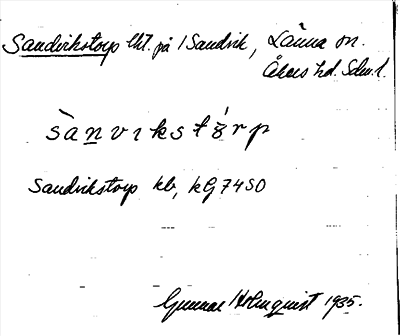 Sandvikstorp lht. på 1 Sandvik, Länna sn.
Åkers hd. Sdm.l.
sànvikstɜ́rp
Sandvikstorp kb, kG 7450
Gunnar Holmquist 1935.